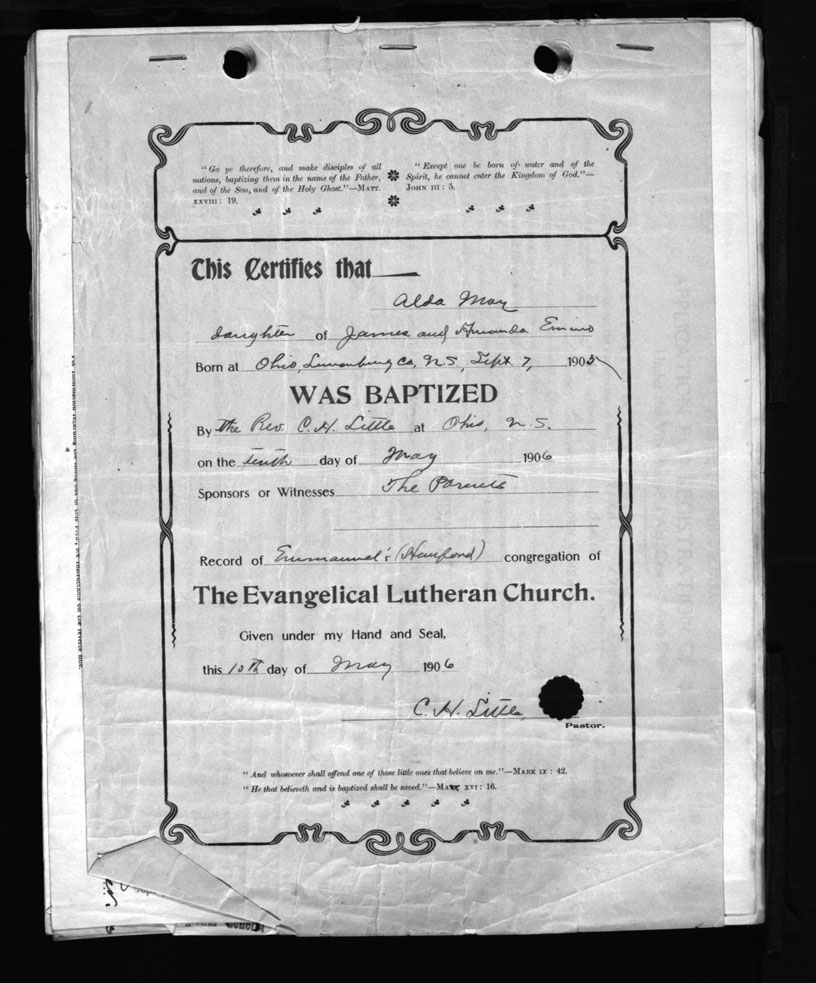 "Go ye therefore, and make disciples of all
nations, baptizing them in the name of the Father,
and of the Son, and of the Holy Ghost."—MATT.
XXVIII : 19.
"Except one be born of water and of the
Spirit, he cannot enter the Kingdom of God."—
JOHN III : 5.
This Certifies that
Alda May
daughter of James and Amanda
Born at Ohio, Lunenburg Co, N.S., Sept 7, 1905
WAS BAPTIZED
By the Rev. C. H. Little at Ohio, N.S.
on the tenth day of May 1906
Sponsors or Witnesses The Parents
Record of Emmanuel's congregation of
The Evangelical Lutheran Church.
Given under my Hand and Seal,
this 10th day of May 1906
C. H. Little,
Pastor.
"And whosoever shall offend one of those little ones that believe on me."—MARK IX : 42.
"He that believeth and is baptized shall be saved."—MARK XVI : 16.